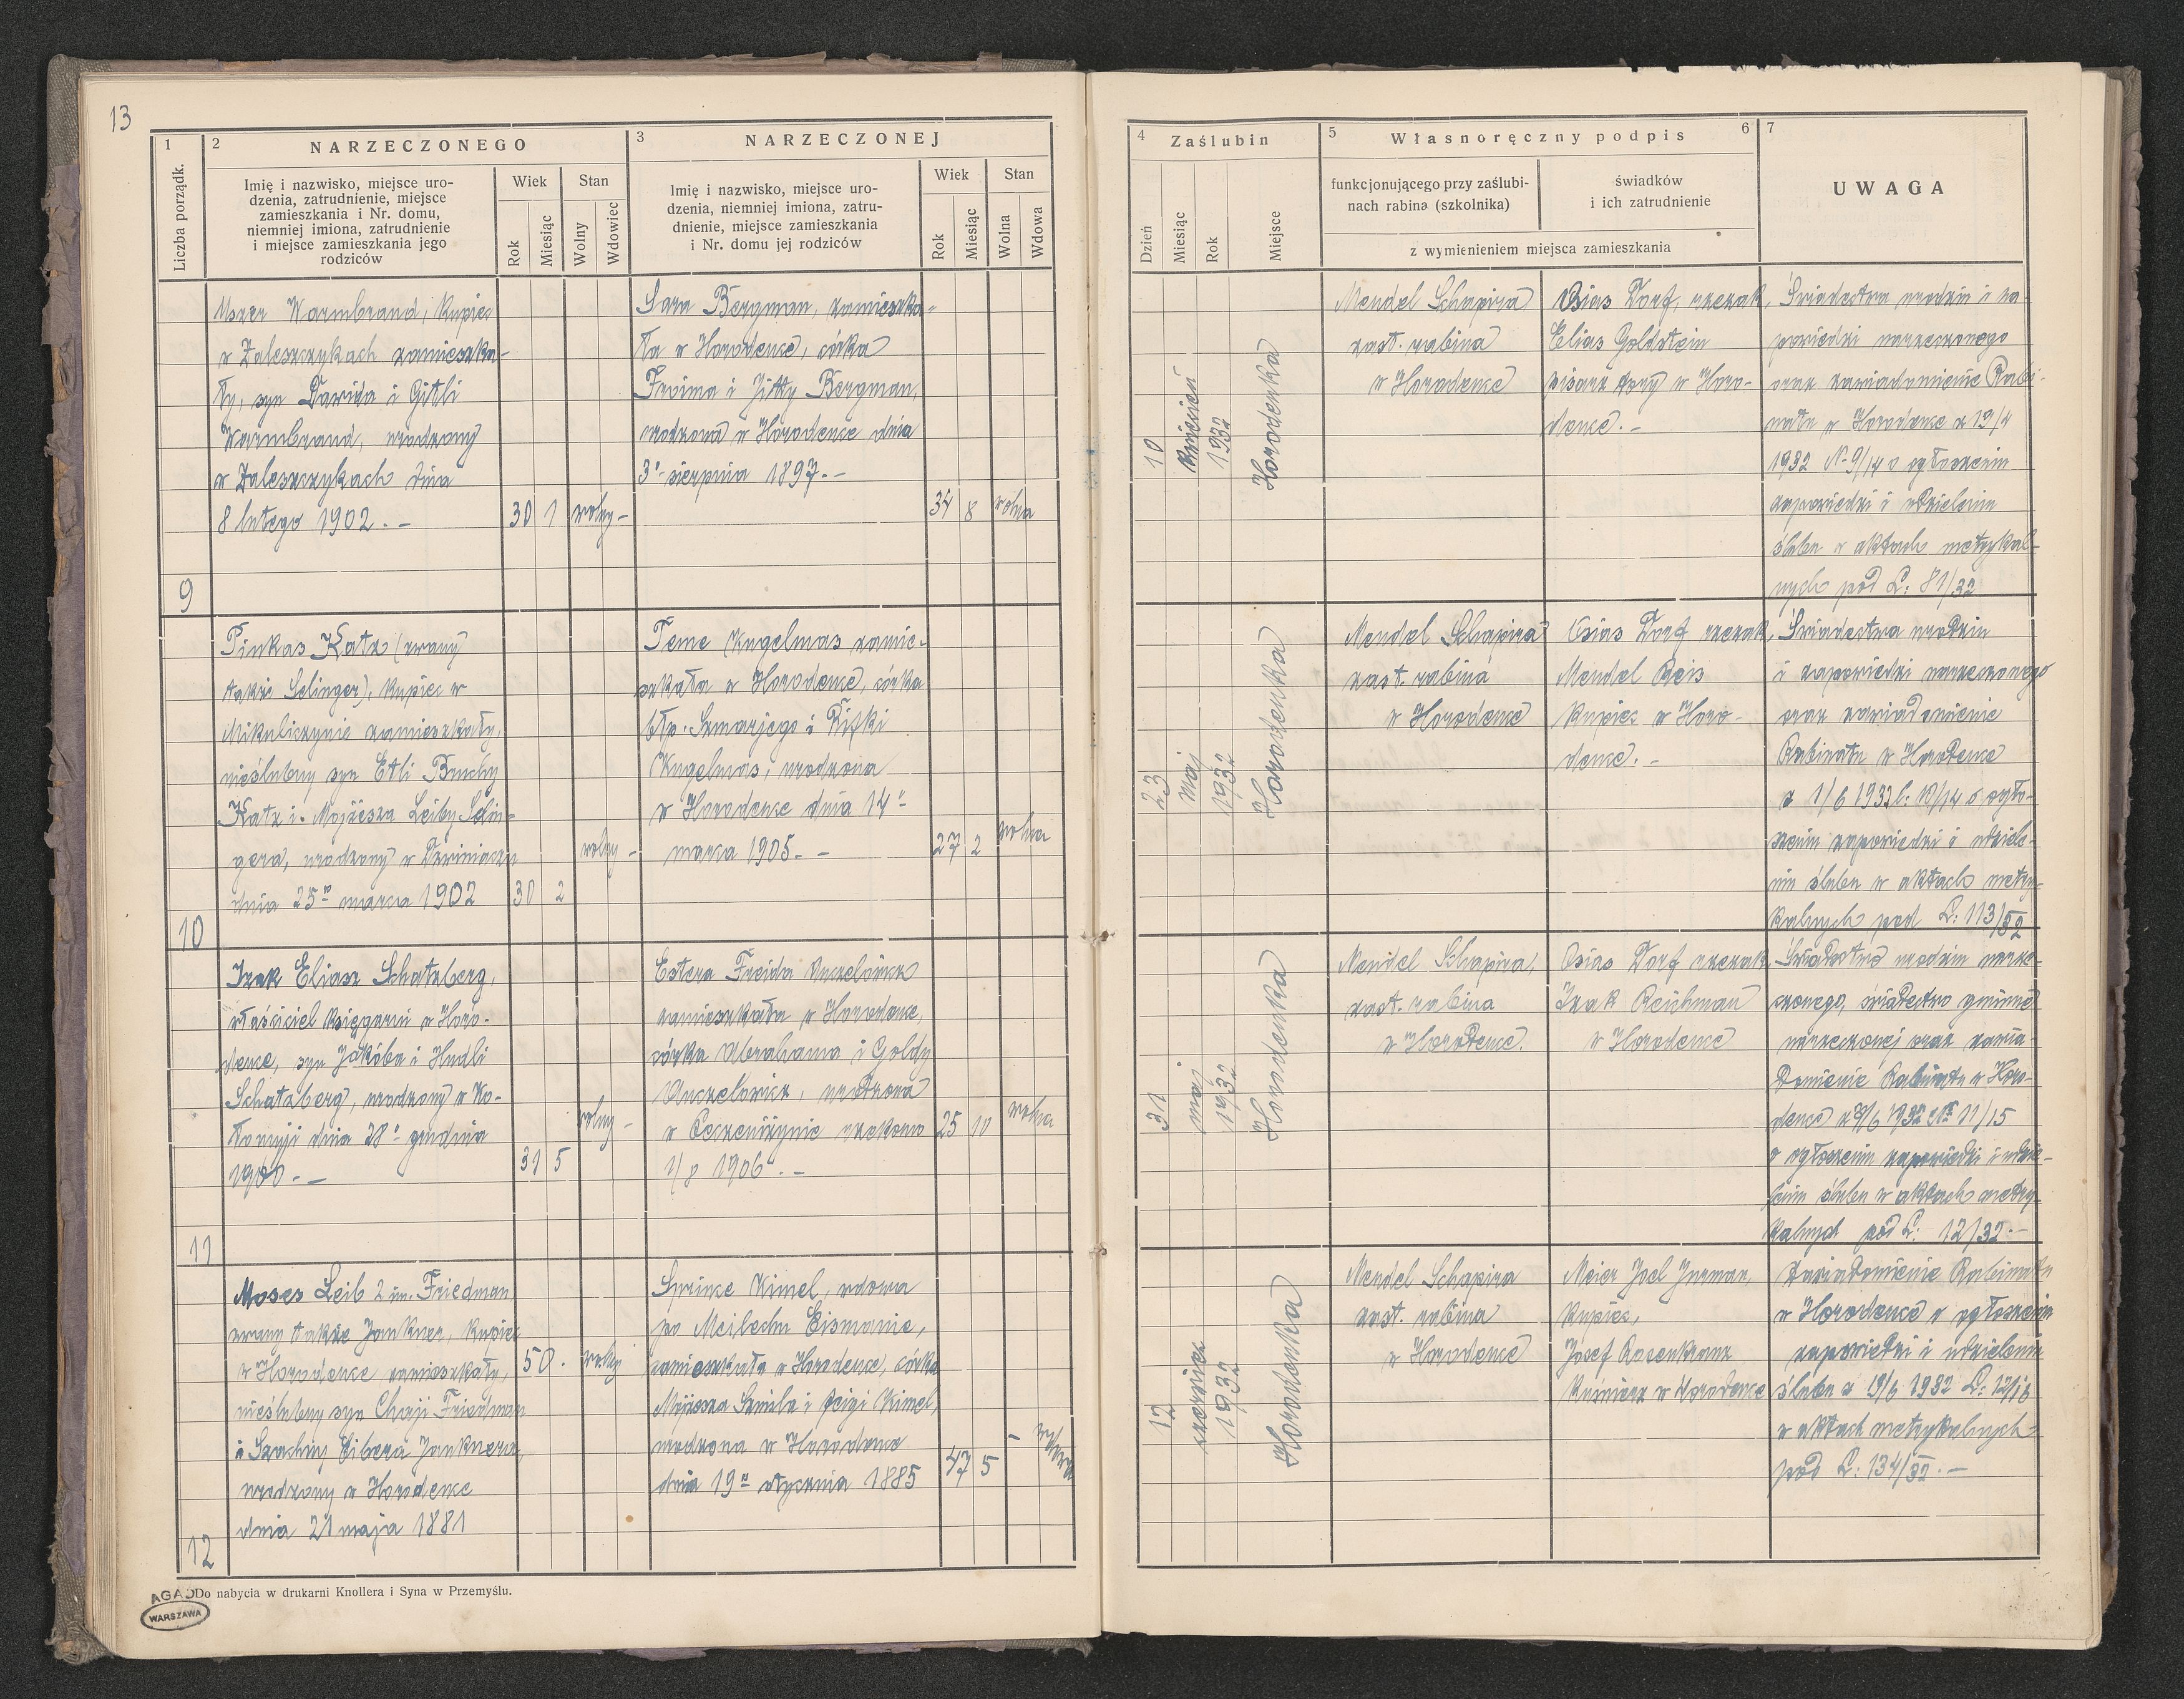 13
1
2
NARZECZONEGO
3
NARZECZONEJ
Liczba porządk.
Imię i nazwisko, miejsce uro-
dzenia, zatrudnienie, miejsce
zamieszkania i Nr. domu,
niemniej imiona, zatrudnienie
i miejsce zamieszkania jego
rodziców
Wiek
Stan
Rok
Miesiąc
Wolny
Wdowiec
Imię i nazwisko, miejsce uro-
dzenia, niemniej imiona, zatru-
dnienie, miejsce zamieszkania
i Nr. domu jej rodziców
Wiek
Stan
Rok
Miesiąc
Wolna
Wdowa
4
Zaślubin
5
Własnoręczny podpis
6
7
Dzień
Miesiąc
Rok
Miejsce
funkcjonującego przy zaślubi-
nach rabina (szkolnika)
świadków
i ich zatrudnienie
z wymienieniem miejsca zamieszkania
UWAGA
9
Warmbrand, kupiec
w Zaleszczykach zamieszka-
ły, syn Dawida i Gitli
Warmbrand, urodzony
w Zaleszczykach dnia
8 lutego 1902.-
30
1
wolny-
Sara Bergman, zamieszka-
ła w Horodence, córka
Froima i Jitty Bergman,
urodzona w Horodence dnia
3 sierpnia 1897.-
34
8
wolna
10
kwiecień
1932
Horodenka
Mendel Schapira
zast. rabina
w Horodence
Osias Dorf, rzezak
Elias Goldstein
pisarz tory w Horo-
dence.-
Świadectwa urodzin i za-
powiedzi narzeczonego
oraz zawiadomienie Rabi-
natu w Horodence z 19/4
1932 N 9/14 o ogłoszeniu
zapowiedzi i udzieleniu
ślubu w aktach metrykal-
nych pod L: 81/32
10
Pinkas Katz (zwany
także Selinger), kupiec w
Mikuliczynie zamieszkały,
nieślubny syn Etli Bruchy
Katz i Mojżesza Leiby Selin-
gera, urodzony w Dzwiniaczu
dnia 25 marca 1902
30
2
wolny-
Teme Kugelmas zamie-
szkała w Horodence, córka
błp. Szmarjego i Rifki
Kugelmas, urodzona
w Horodence dnia 14
marca 1905.-
27
2
wolna
23
maj
1932
Horodenka
Mendel Schapira
zast. rabina
w Horodence
Osias Dorf rzezak
Mendel Reis
kupiec w Horo-
dence.-
Świadectwa urodzin
i zapowiedzi narzeczonego
oraz zawiadomienie
Rabinatu w Horodence
z 1/6 1932 l: 10/14 o ogło-
szeniu zapowiedzi i udziele-
niu ślubu w aktach metry-
kalnych pod L: 113/32
11
Izak Eliasz Schatzberg,
właściciel księgarni w Horo-
dence, syn Jakóba i Hudli
Schatzberg, urodzony w Ko-
łomyji dnia 28 grudnia
1900.-
31
5
wolny-
Estera Freida
zamieszkała w Horodence,
córka Abrahama i Goldy
urodzona
w Peczeniżynie rzekomo
1/8 1906.-
25
10
wolna
31
maj
1932
Horodenka
Mendel Schapira,
zast. rabina
w Horodence.
Osias Dorf rzezak
Izak Reichman
w Horodence
Świadectwo urodzin narze-
czonego, świadectwo gminne
narzeczonej oraz zawia-
domienie Rabinatu w Horo-
dence z 9/6 1932 11/15
o ogłoszeniu zapowiedzi i udzie-
leniu ślubu w aktach metry-
kalnych pod L: 12/32.-
12
Moses Leib 2 im. Friedman
zwany także Jankner, kupiec
w Horodence zamieszkały,
nieślubny syn Chaji Friedman
i Szachny Janknera,
urodzony w Horodence
dnia 21 maja 1881
50.
wolny
Sprince Kimel, wdowa
po Meilechu Eismanie,
zamieszkała w Horodence, córka
Mojżesza Szmila i Feigi Kimel,
urodzona w Horodence
dnia 19 stycznia 1885
47
5
-
wdowa
12
czerwiec
1932
Horodenka
Mendel Schapira
zast. rabina
w Horodence
Meier Joel Jurman,
kupiec,
Josef Rosenkranz
kuśnierz w Horodence
Zawiadomienie Rabinatu
w Horodence o ogłoszeniu
zapowiedzi i udzieleniu
ślubu z 19/6 1932 L: 12/16
w aktach metrykalnych
pod L: 134/32.-
AGAD
WARSZAWA
Do nabycia w drukarni Knollera i Syna w Przemyślu.